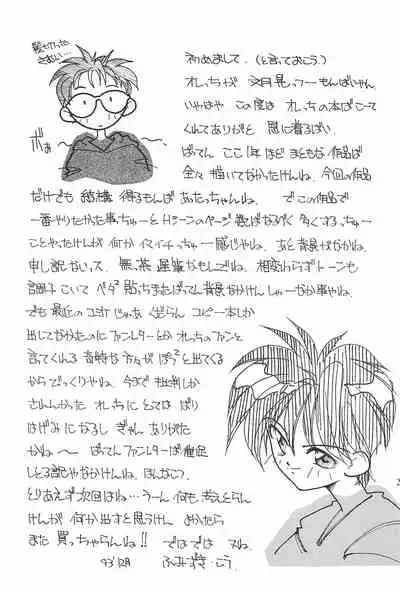 髪切ったさむい…
初めまして．(と言っておこう．)
おれっちが 文月晃っつーもんばいやん
いやはや この度は おれっちの本ばこーて
くれてありがと 恩に着るばい．
ばってん ここ1年ほど まともな作品は
全々 描いてなかたけんね．今回の作品
だけでも 結構 得るもんば あたっちゃんね． で この作品で
一番やりたかた事ちゅーと Hシーンのページ数ばなるべく 多くするっちゅー
ことやったけんが 何か イマイチっちゅー感じやね． あと 背景がなかね．
申し訳ないッス． 無っ茶 遅筆かもしてね．相変わらずトーンも
調子こいて ペタペタ 貼っちまたばってん背景なかけん しゃーなか事やね．
でも 最近のコミケじゃあ くだらん コピー本しか
出してなかたのに ファンレターとか おれっちのファンと
言てくれる 奇特な方々が ぽつぽつと出てくる
からびっくりやね．今まで 批判しか
されんかった おれっちにとては ばり
はげみになるし ぎゃん ありがた
かね〜 ばってんファンレターば催促
しとる訳やなかけんね．ほんなこつ．
とりあえず次回はね…うーん 何も考えとらん
けんが 何か出すと思うけん めかたら
また 買っちゃらんね!! ではでは ヌね．
93'12月 ふみづき・こう．